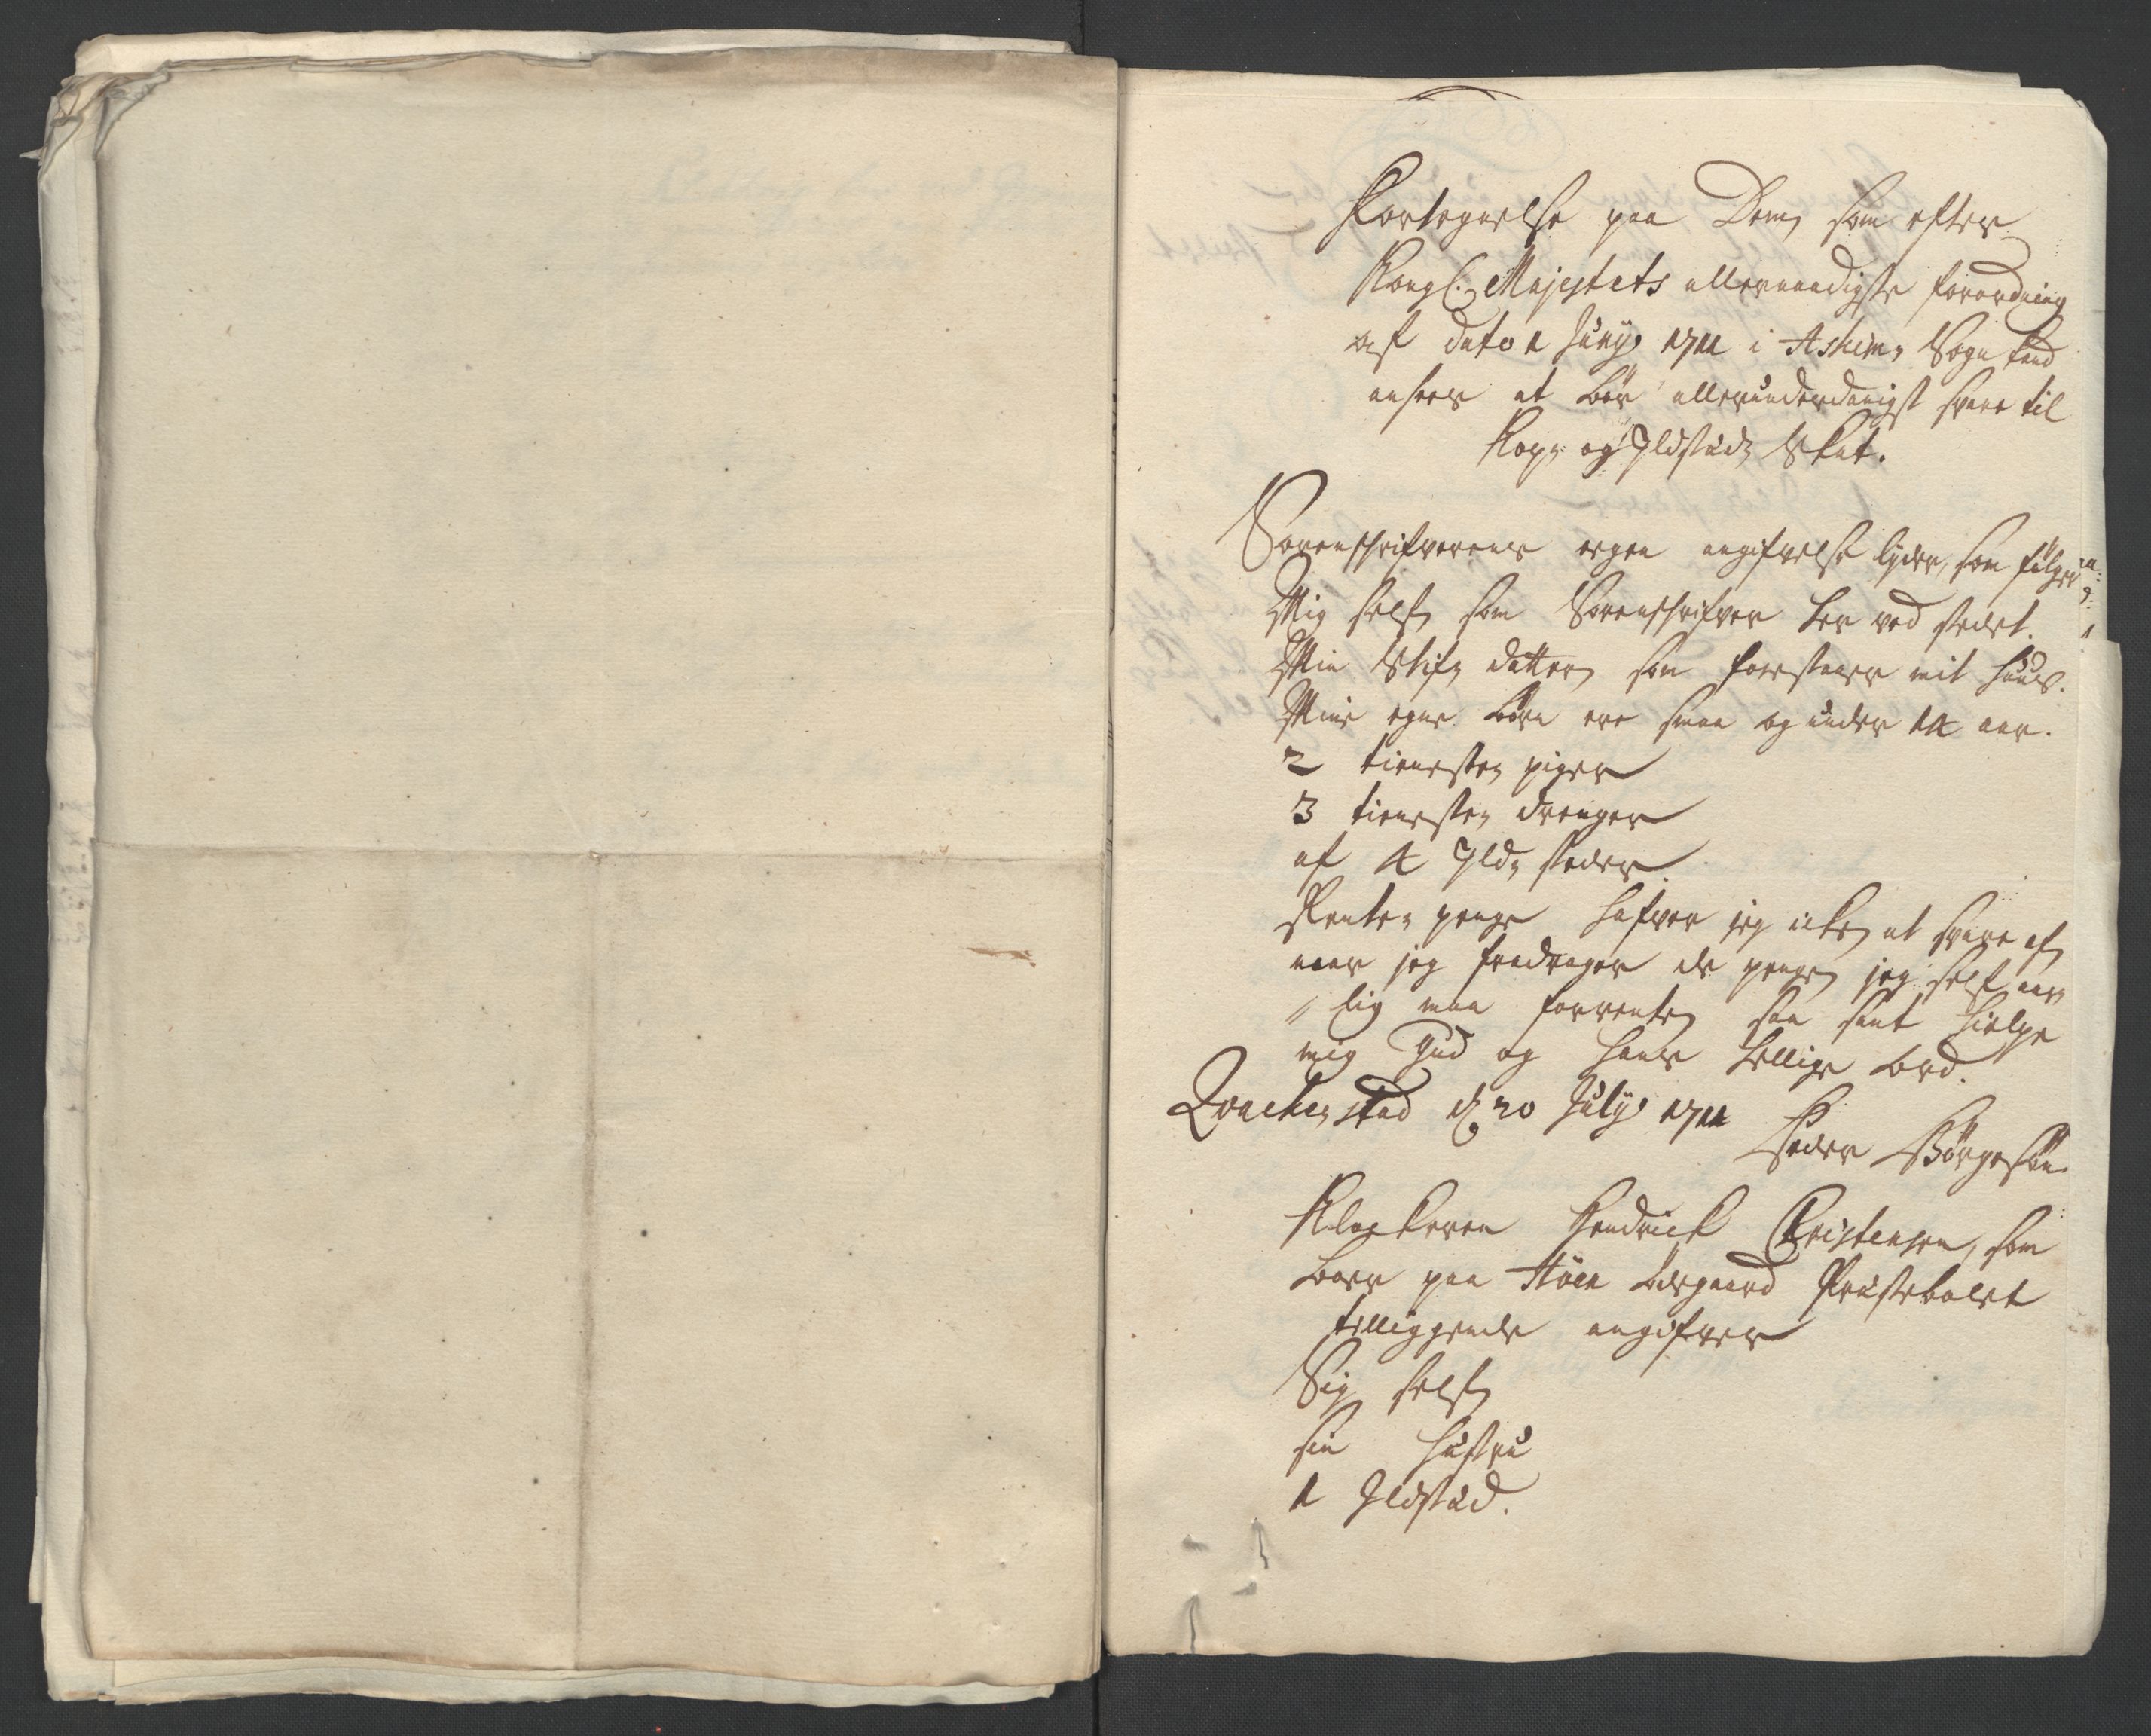 Fortegnelse paa Dem som efter
Kongl. Majestets allernaadigste forordning
af dato 1 Junij 1711 i Askims Sogn
ansees at bør allerunderdanigst svare til
Kop- og Ildstæd Skat.
Sorenschrifverens egen angifvelse lyder, som følger
Mig self som Sorenschrifver her ved stedet.
Min Stif datter som forestaar mit huus.
Mine egne børn ere smaa og under 14 aar.
2 tieneste piger
3 tieneste drenger
af 4 Ild steder
Rente penge hafver jeg icke at svare af
naar jeg fradrager de penge jeg self aar
lig maa forrente saa sant hielpe
mig Gud og hans hellige ord.
d 20 Julij 1711
Peder Børgesøn
Klockeren Hendrick Christensen, som
boer paa Høen ødegaard Prestebolet
tilliggende angifver
Sig self
sin hustru
1 Ildstæd.